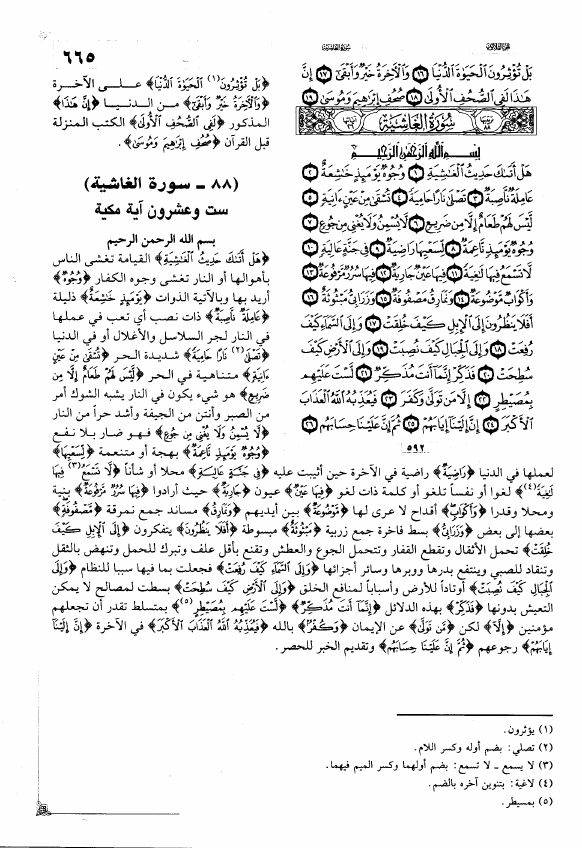 ٦٦٥
سورة الغاشية
الجزء الثلاثون
بَلْ تُؤْثِرُونَ الْحَيَوٰةَ الدُّنْيَا ١٦ وَالْآخِرَةُ خَيْرٌ وَأَبْقَىٰ ١٧ إِنَّ
هَٰذَا لَفِي الصُّحُفِ الْأُولَىٰ ١٨ صُحُفِ إِبْرَاهِيمَ وَمُوسَىٰ ١٩
سُورَةُ الْغَاشِيَةِ
بِسْمِ اللَّهِ الرَّحْمَٰنِ الرَّحِيمِ
هَلْ أَتَىٰكَ حَدِيثُ الْغَٰشِيَةِ ١ وُجُوهٌ يَوْمَئِذٍ خَٰشِعَةٌ ٢
عَامِلَةٌ نَّاصِبَةٌ ٣ تَصْلَىٰ نَارًا حَامِيَةً ٤ تُسْقَىٰ مِنْ عَيْنٍ ءَانِيَةٍ ٥
لَّيْسَ لَهُمْ طَعَامٌ إِلَّا مِن ضَرِيعٍ ٦ لَّا يُسْمِنُ وَلَا يُغْنِي مِن جُوعٍ ٧
وُجُوهٌ يَوْمَئِذٍ نَّاعِمَةٌ ٨ لِّسَعْيِهَا رَاضِيَةٌ ٩ فِي جَنَّةٍ عَالِيَةٍ ١٠
لَّا تَسْمَعُ فِيهَا لَٰغِيَةً ١١ فِيهَا عَيْنٌ جَارِيَةٌ ١٢ فِيهَا سُرُرٌ مَّرْفُوعَةٌ ١٣
وَأَكْوَابٌ مَّوْضُوعَةٌ ١٤ وَنَمَارِقُ مَصْفُوفَةٌ ١٥ وَزَرَابِيُّ مَبْثُوثَةٌ ١٦
أَفَلَا يَنظُرُونَ إِلَى الْإِبِلِ كَيْفَ خُلِقَتْ ١٧ وَإِلَى السَّمَاءِ كَيْفَ
رُفِعَتْ ١٨ وَإِلَى الْجِبَالِ كَيْفَ نُصِبَتْ ١٩ وَإِلَى الْأَرْضِ كَيْفَ
سُطِحَتْ ٢٠ فَذَكِّرْ إِنَّمَا أَنتَ مُذَكِّرٌ ٢١ لَّسْتَ عَلَيْهِم
بِمُصَيْطِرٍ ٢٢ إِلَّا مَن تَوَلَّىٰ وَكَفَرَ ٢٣ فَيُعَذِّبُهُ اللَّهُ الْعَذَابَ
الْأَكْبَرَ ٢٤ إِنَّ إِلَيْنَا إِيَابَهُمْ ٢٥ ثُمَّ إِنَّ عَلَيْنَا حِسَابَهُم ٢٦
٥٩٢
﴿بَلْ تُؤْثِرُونَ(١) الْحَيَوٰةَ الدُّنْيَا﴾ على الآخرة
﴿وَالْآخِرَةُ خَيْرٌ وَأَبْقَىٰ﴾ من الدنيا ﴿إِنَّ هَٰذَا﴾
المذكور ﴿لَفِي الصُّحُفِ الْأُولَىٰ﴾ الكتب المنزلة
قبل القرآن ﴿صُحُفِ إِبْرَاهِيمَ وَمُوسَىٰ﴾.
(٨٨ - سورة الغاشية)
ست وعشرون آية مكية
بسم الله الرحمن الرحيم
﴿هَلْ أَتَىٰكَ حَدِيثُ الْغَٰشِيَةِ﴾ القيامة تغشى الناس
بأهوالها أو النار تغشى وجوه الكفار ﴿وُجُوهٌ﴾
أريد بها وبالآتية الذوات ﴿يَوْمَئِذٍ خَٰشِعَةٌ﴾ ذليلة
﴿عَامِلَةٌ نَّاصِبَةٌ﴾ ذات نصب أي تعب في عملها
في النار لجر السلاسل والأغلال أو في الدنيا
﴿تَصْلَىٰ(٢) نَارًا حَامِيَةً﴾ شديدة الحر ﴿تُسْقَىٰ مِنْ عَيْنٍ
ءَانِيَةٍ﴾ متناهية في الحر ﴿لَّيْسَ لَهُمْ طَعَامٌ إِلَّا مِن
ضَرِيعٍ﴾ هو شيء يكون في النار يشبه الشوك أمر
من الصبر وأنتن من الجيفة وأشد حراً من النار
﴿لَّا يُسْمِنُ وَلَا يُغْنِي مِن جُوعٍ﴾ فهو ضار بلا نفع
﴿وُجُوهٌ يَوْمَئِذٍ نَّاعِمَةٌ﴾ بهجة أو متنعمة ﴿لِّسَعْيِهَا﴾
لعملها في الدنيا ﴿رَاضِيَةٌ﴾ راضية في الآخرة حين أثيبت عليه ﴿فِي جَنَّةٍ عَالِيَةٍ﴾ محلا أو شأناً ﴿لَّا تَسْمَعُ(٣) فِيهَا
لَٰغِيَةً(٤)﴾ لغوا أو نفساً تلغو أو كلمة ذات لغو ﴿فِيهَا عَيْنٌ﴾ عيون ﴿جَارِيَةٌ﴾ حيث أرادوا ﴿فِيهَا سُرُرٌ مَّرْفُوعَةٌ﴾ بنية
ومحلا وقدرا ﴿وَأَكْوَابٌ﴾ أقداح لا عرى لها ﴿مَّوْضُوعَةٌ﴾ بين أيديهم ﴿وَنَمَارِقُ﴾ مساند جمع نمرقة ﴿مَصْفُوفَةٌ﴾
بعضها إلى بعض ﴿وَزَرَابِيُّ﴾ بسط فاخرة جمع زربية ﴿مَبْثُوثَةٌ﴾ مبسوطة ﴿أَفَلَا يَنظُرُونَ﴾ يتفكرون ﴿إِلَى الْإِبِلِ كَيْفَ
خُلِقَتْ﴾ تحمل الأثقال وتقطع القفار وتتحمل الجوع والعطش وتقنع بأقل علف وتبرك للحمل وتنهض بالثقل
وتنقاد للصبي وينتفع بدرها ووبرها وسائر أجزائها ﴿وَإِلَى السَّمَاءِ كَيْفَ رُفِعَتْ﴾ فجعلت بما فيها سببا للنظام ﴿وَإِلَى
الْجِبَالِ كَيْفَ نُصِبَتْ﴾ أوتاداً للأرض وأسباباً لمنافع الخلق ﴿وَإِلَى الْأَرْضِ كَيْفَ سُطِحَتْ﴾ بسطت لمصالح لا يمكن
التعيش بدونها ﴿فَذَكِّرْ﴾ بهذه الدلائل ﴿إِنَّمَا أَنتَ مُذَكِّرٌ﴾ ﴿لَّسْتَ عَلَيْهِم بِمُصَيْطِرٍ(٥)﴾ بمتسلط تقدر أن تجعلهم
مؤمنين ﴿إِلَّا﴾ لكن ﴿مَن تَوَلَّىٰ﴾ عن الإيمان ﴿وَكَفَرَ﴾ بالله ﴿فَيُعَذِّبُهُ اللَّهُ الْعَذَابَ الْأَكْبَرَ﴾ في الآخرة ﴿إِنَّ إِلَيْنَا
إِيَابَهُمْ﴾ رجوعهم ﴿ثُمَّ إِنَّ عَلَيْنَا حِسَابَهُم﴾ وتقديم الخبر للحصر.
(١) يؤثرون.
(٢) تصلي: بضم أوله وكسر اللام.
(٣) لا يسمع - لا تسمع: بضم أولهما وكسر الميم فيهما.
(٤) لاغية: بتنوين آخره بالضم.
(٥) بمسيطر.